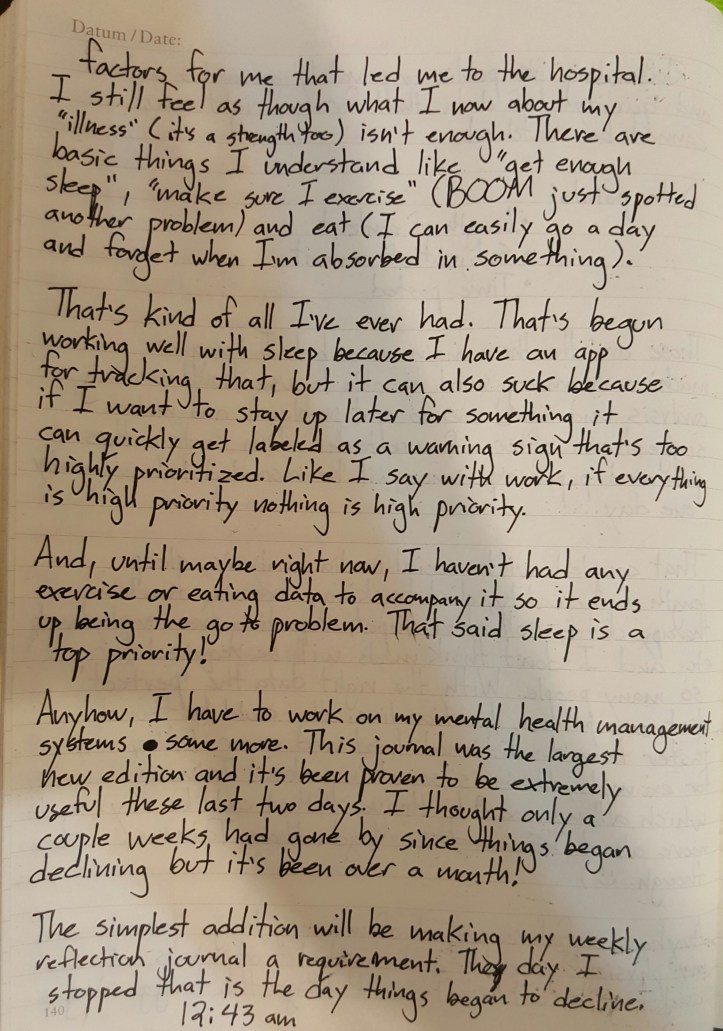 Datum / Date:
factors for me that led me to the hospital.
I still feel as though what I now about my
"illness" (it's a strength too) isn't enough. There are
basic things I understand like "get enough
sleep", "make sure I exercise" (BOOM just spotted
another problem) and eat (I can easily go a day
and forget when I'm absorbed in something).
That's kind of all I've ever had. That's begun
working well with sleep because I have an app
for tracking that, but it can also suck because
if I want to stay up later for something it
can quickly get labeled as a warning sign that's too
highly prioritized. Like I say with work, if everything
is high priority nothing is high priority.
And, until maybe right now, I haven't had any
exercise or eating data to accompany it so it ends
up being the go to problem. That said sleep is a
top priority!
Anyhow, I have to work on my mental health management
systems some more. This journal was the largest
new edition and it's been proven to be extremely
useful these last two days. I thought only a
couple weeks had gone by since things began
declining but it's been over a month!
The simplest addition will be making my weekly
reflection journal a requirement. The day I
stopped that is the day things began to decline.
140
12:43 am